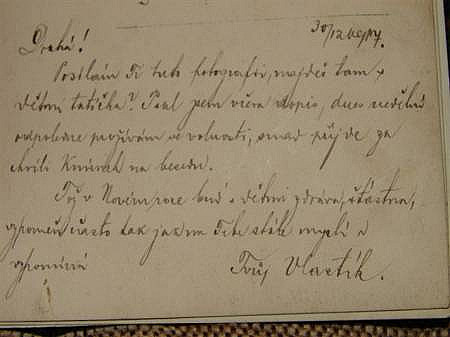 30/12 1917.
Drahá!
Posílám Ti tuto fotografii, najdeš tam s
dětmi tatíčka? Psal jsem včera dopis, dnes nedělní
odpoledne prožívám ve volnosti, snad přijde za
chvíli na besedu.
Tož v Novém roce buď s dětmi zdráva, šťastna,
vzpomeň často tak jak na Tebe stále myslí a
vzpomíná
Tvůj Vlastík.